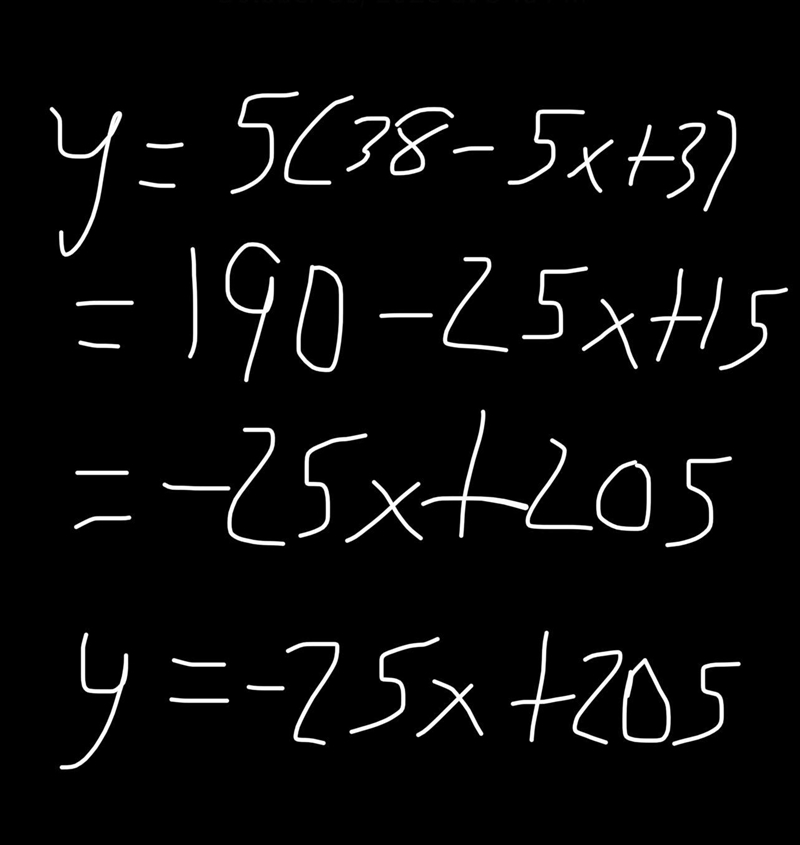 y = 5(38 - 5x + 3)
= 190 - 25x + 15
= -25x + 205
y = -25x + 205